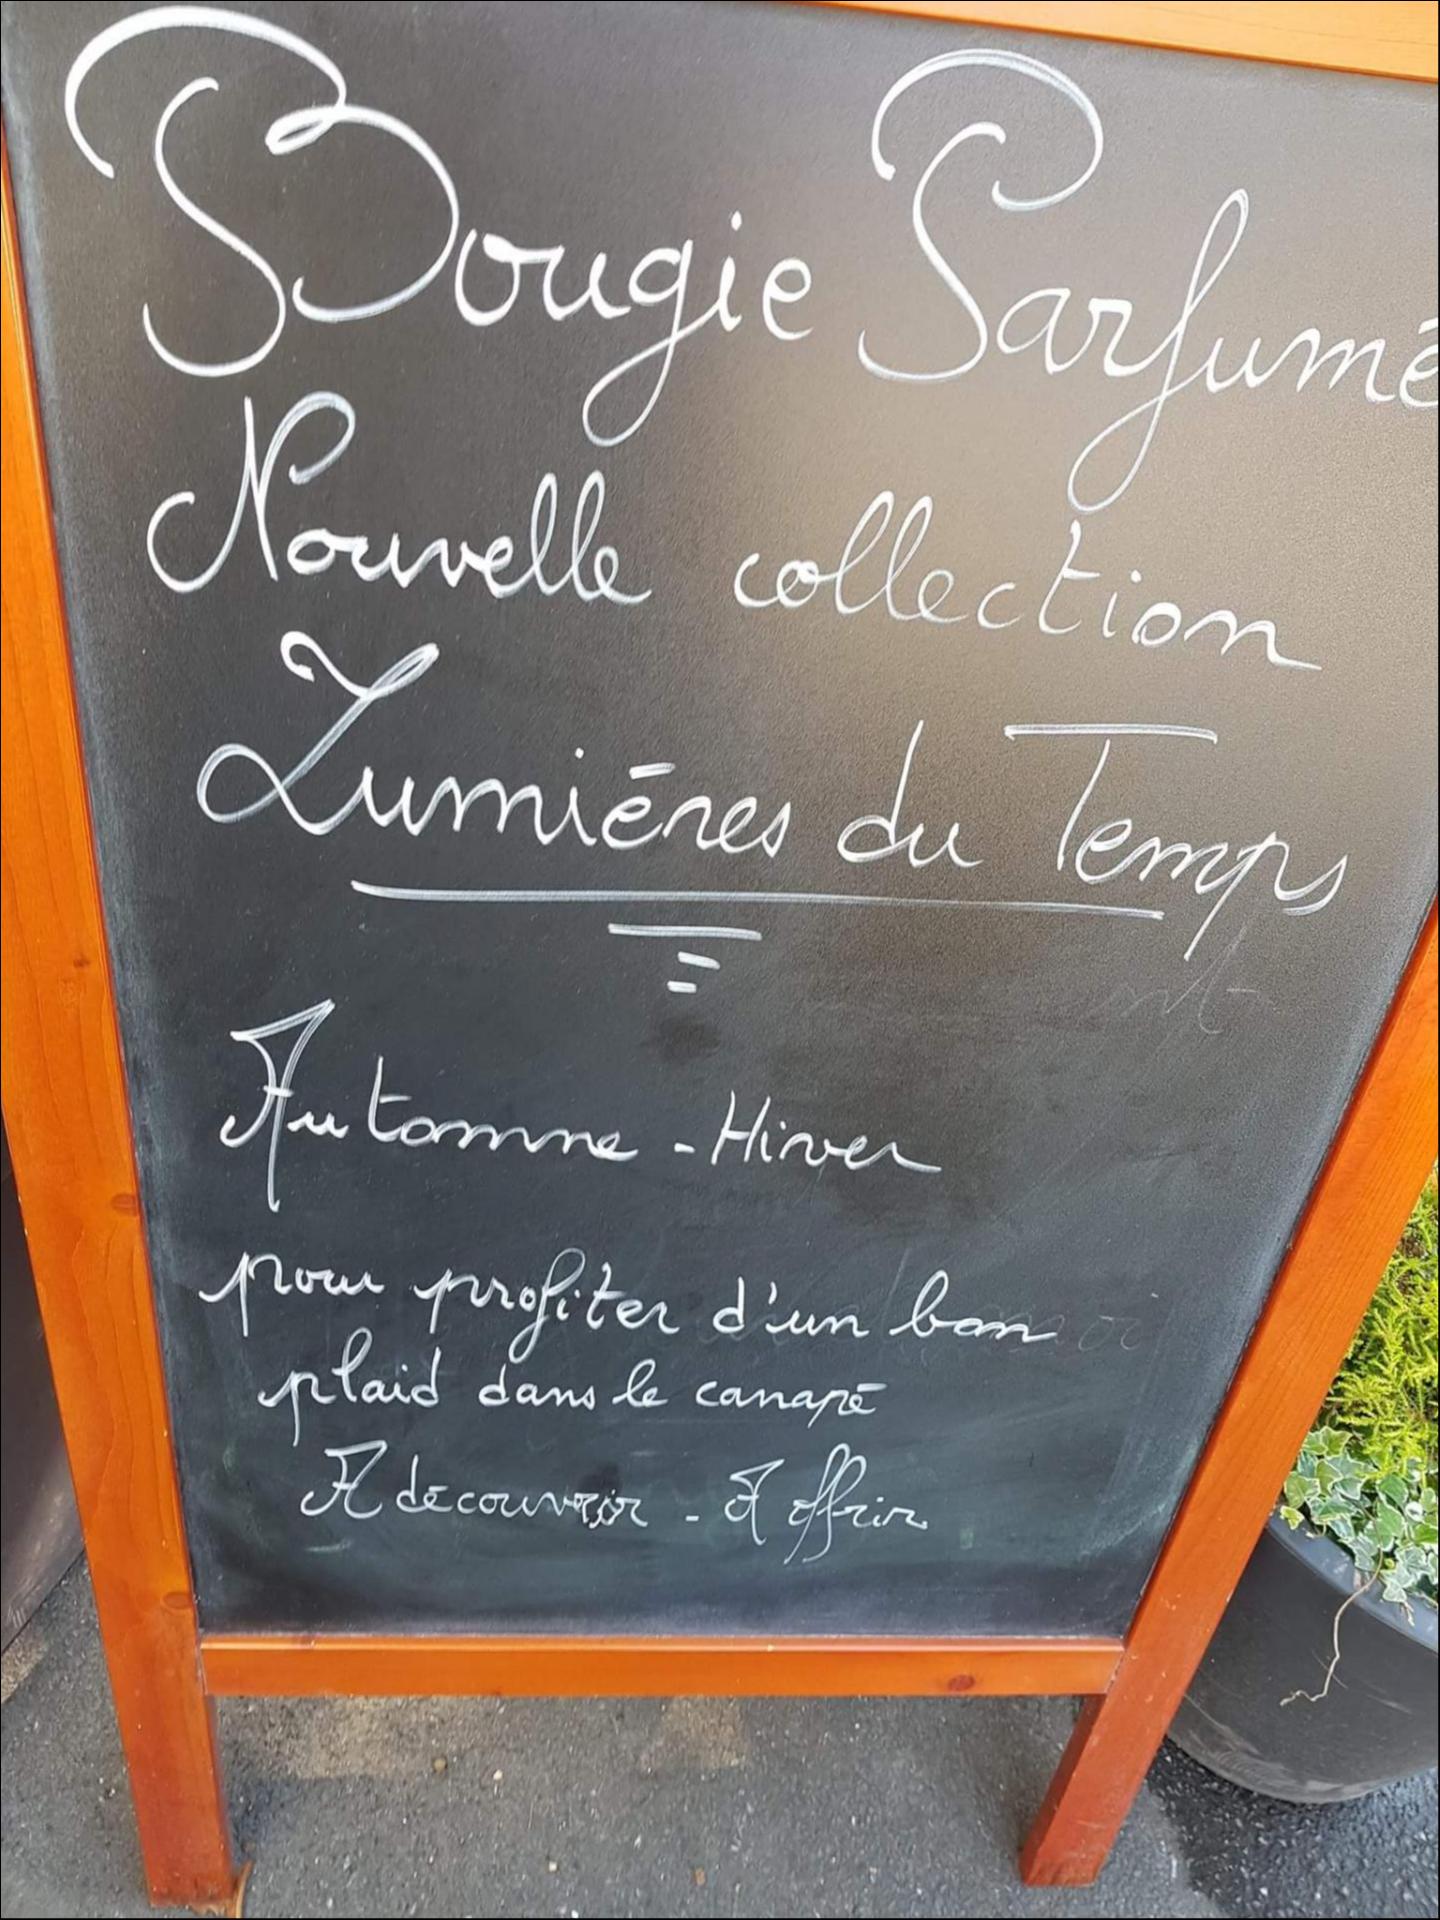 Bougie Parfumé
Nouvelle collection
Lumiéres du Temps
Automne - Hiver
pour profiter d'un bon
plaid dans le canapé
A découvrir - A offrir